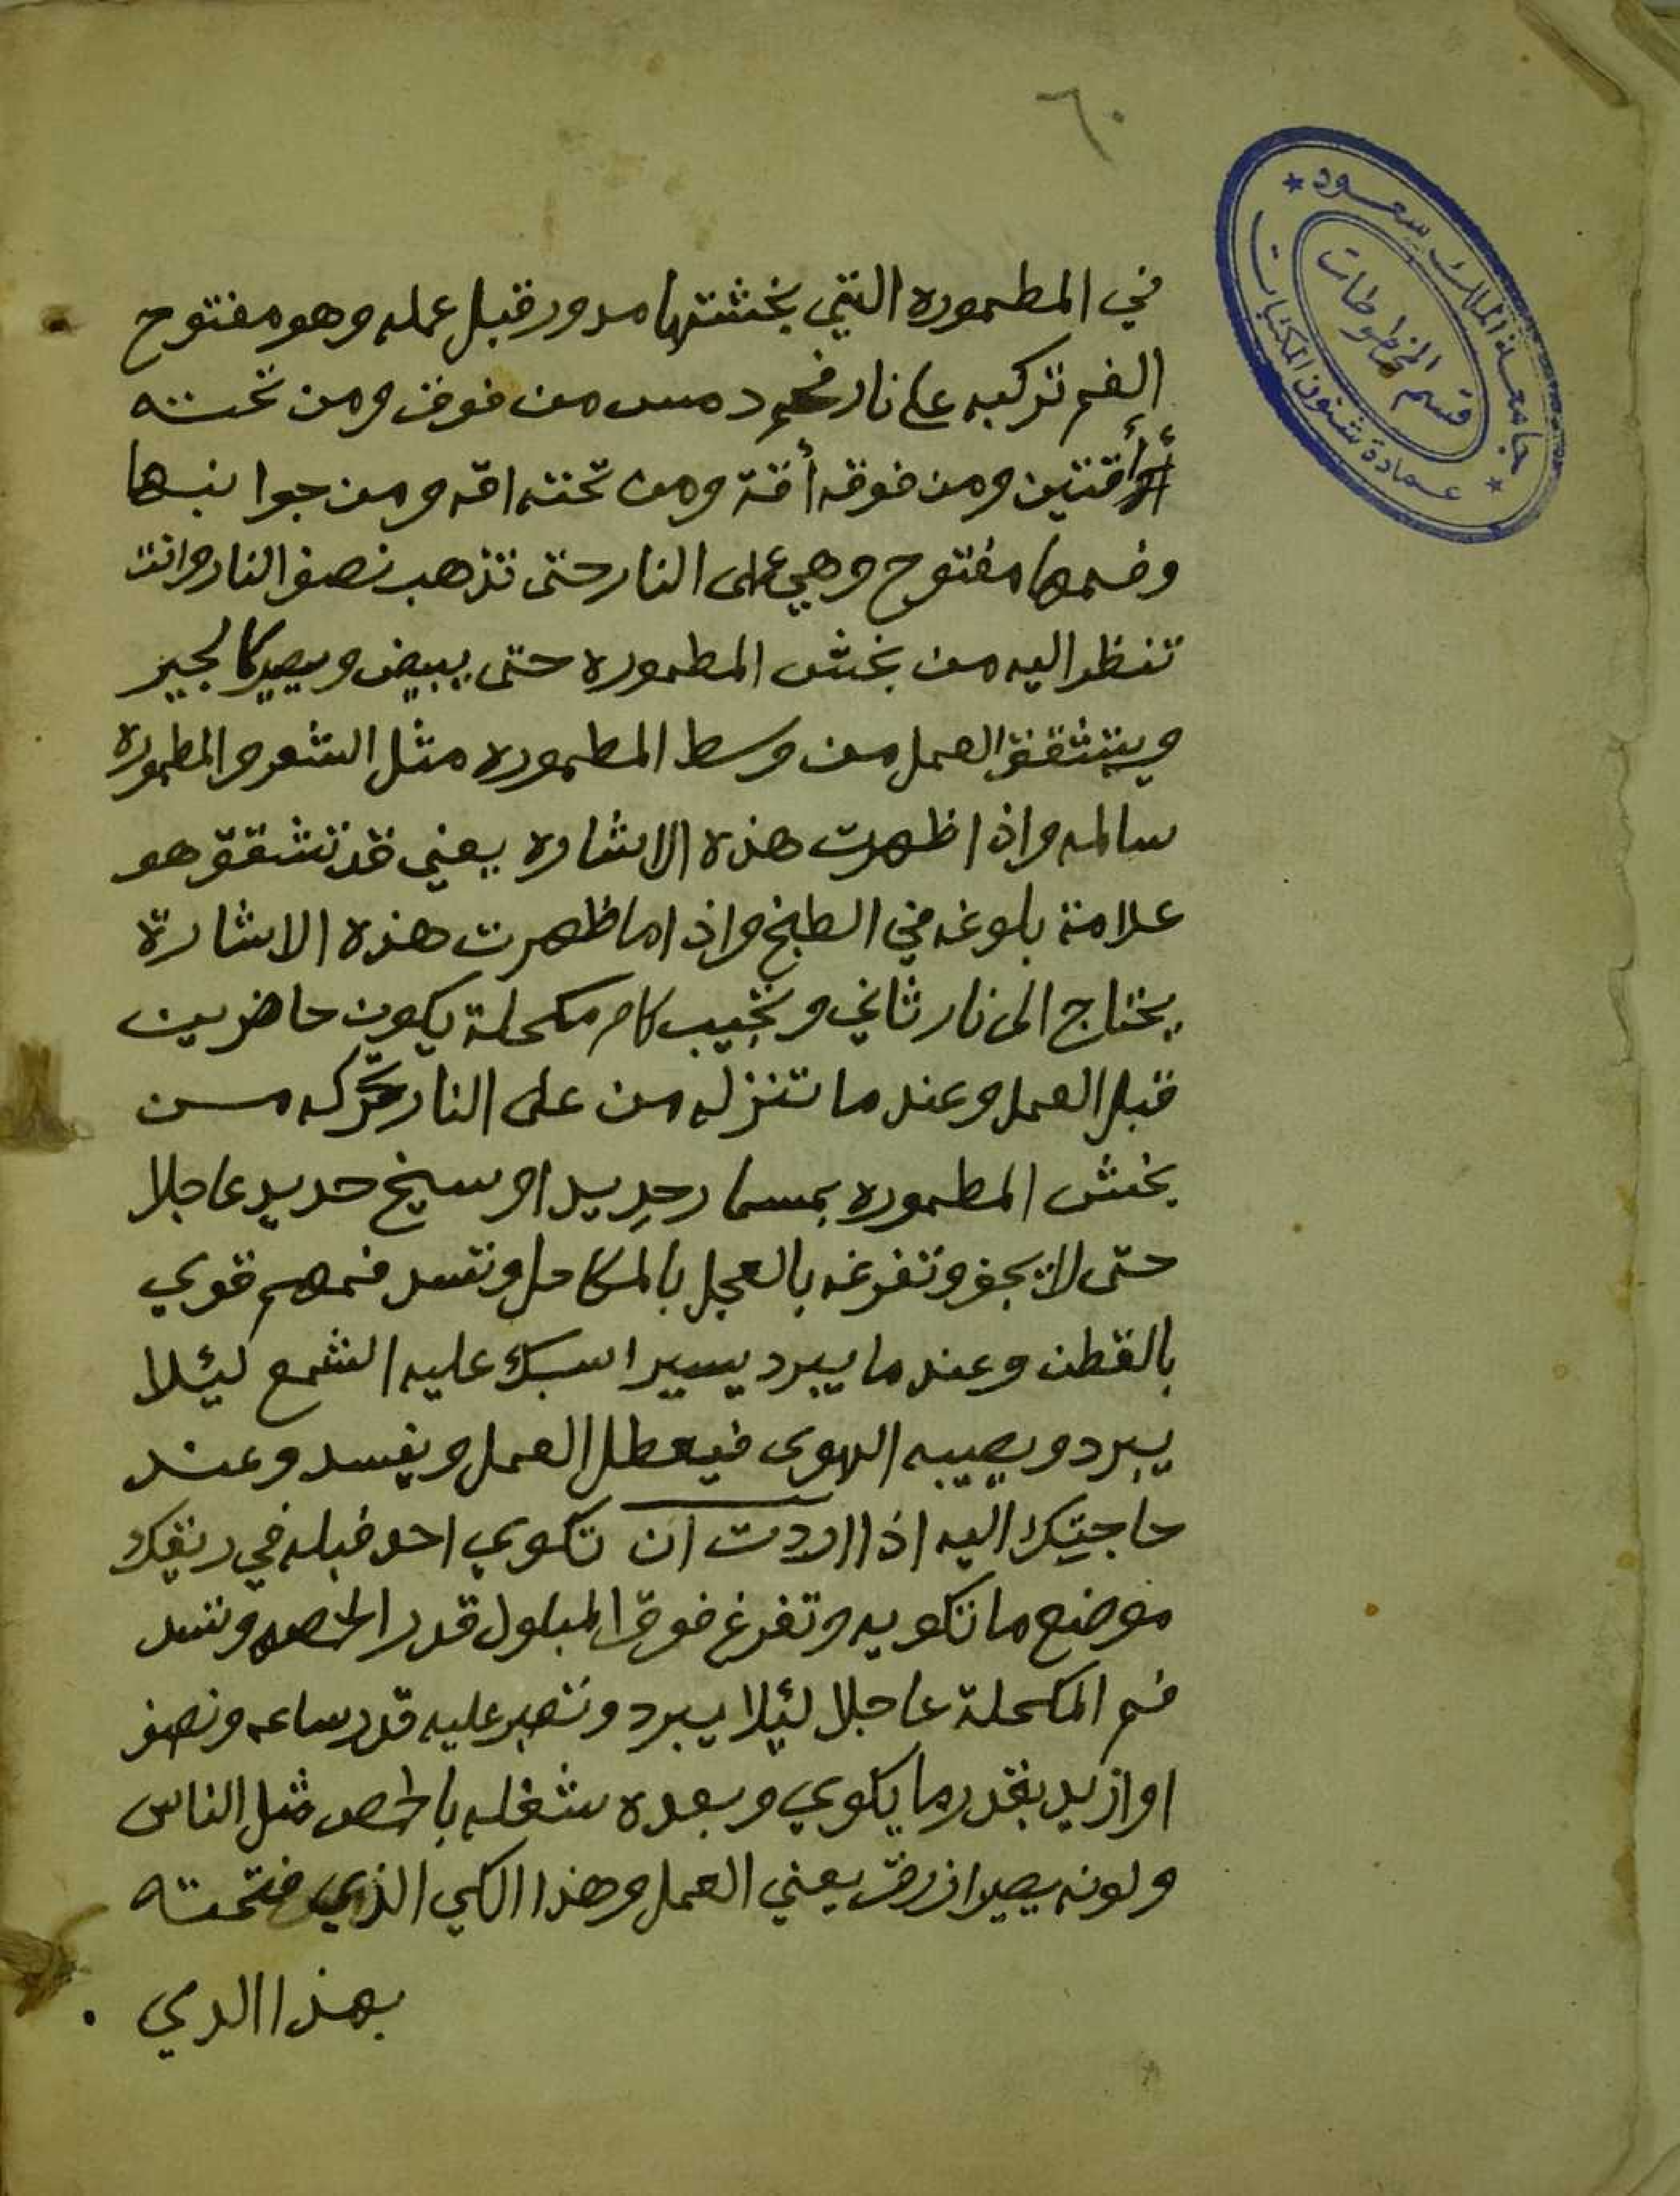 ٦٠
جامعة الملك سعود
قسم المخطوطات
عمادة شئون المكتبات
في المطموره التي بخشتها مدور قبل عمله وهو مفتوح
الفم تركبه على نار فحم دمس من فوق ومن تحته
أقتين ومن فوقه أقة ومن تحته اقه ومن جوانبها
وفمها مفتوح وهي على النار حتى تذهب نصف النار وانت
تنظر اليه من بخش المطموره حتى يبيض ويصير كالجير
ويتشقق العمل من وسط المطموره مثل الشعر والمطموره
سالمه واذا ظهرت هذه الاشاره يعني قد تشقق هو
علامة بلوغه في الطبخ واذا ما ظهرت هذه الاشارة
يحتاج الى نار ثاني وتجيب كام مكحلة يكون حاضرين
قبل العمل وعند ما تنزله من على النار تحركه من
بخش المطموره بمسمار حديد او سيخ حديد عاجلا
حتى لا يجف وتفرغه بالعجل بالمكاحل وتسد فمهم قوي
بالقطن وعند ما يبرد يسير اسبك عليه الشمع ليئلا
يبرد ويصيبه الهوى فيعطل العمل ويفسد وعند
حاجتك اليه اذا اردت ان تكوي احد فبله في ريقك
موضع ما تكويه وتفرغ فوق المبلول قدر الحمصه وتسد
فم المكحلة عاجلا ليئلا يبرد وتصبر عليه قدر ساعه ونصف
او ازيد بقدر ما يكوي وبعده شغله بالحمص مثل الناس
ولونه يصير ازرق يعني العمل وهذا الكي الذي فتحته
بهذا الدي